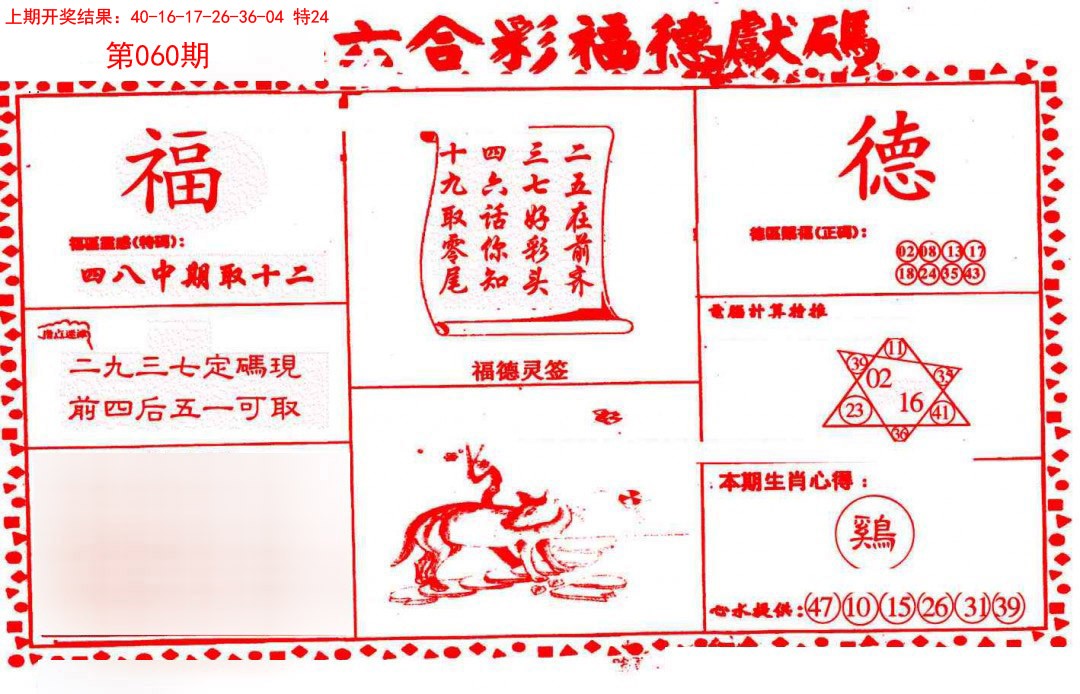 上期开奖结果: 40-16-17-26-36-04 特24
第060期
六合彩福德獻碼
福
福區靈感(特碼):
四八中期取十二
二九三七定碼現
前四后五一可取
二五在前齐
三七好彩头
四六话你知
十九取零尾
福德灵签
德
(正碼):
02 08 13 17
18 24 35 43
電腦計算精推
11
39 02 35
23 16 41
36
本期生肖心得:
鷄
心水提供: 47 10 15 26 31 39